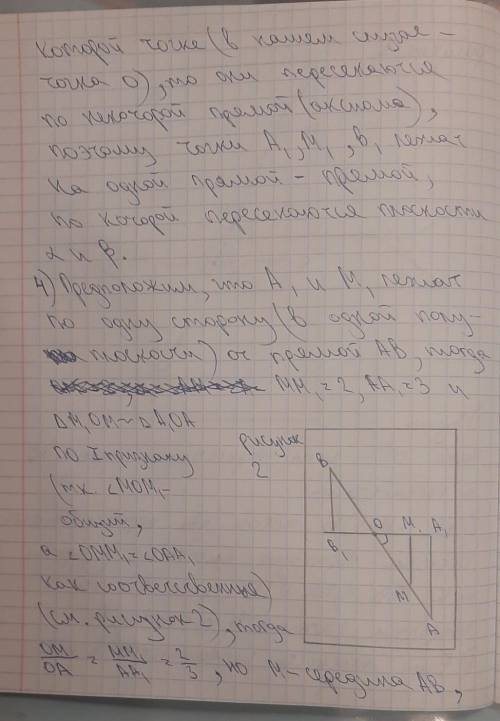 которой точке (в нашем случае -
точка O), то они пересекаются
по некоторой прямой (аксиома),
поэтому точки A₁, M₁, B₁ лежат
на одной прямой - прямой,
по которой пересекаются плоскости
α и β.
4) Предположим, что A₁ и M₁ лежат
по одну сторону (в одной полу-
плоскости) от прямой AB, тогда
MM₁=2, AA₁=3 и
ΔM₁OM~ΔA₁OA
по I признаку
(т.к. ∠MOM₁-
общий,
а ∠OMM₁=∠OAA₁
как соответственные)
(см. рисунок 2), тогда
OM/OA = MM₁/AA₁ = 2/3, но M-середина AB,
рисунок
2
B
O M₁ A₁
B₁
M
A